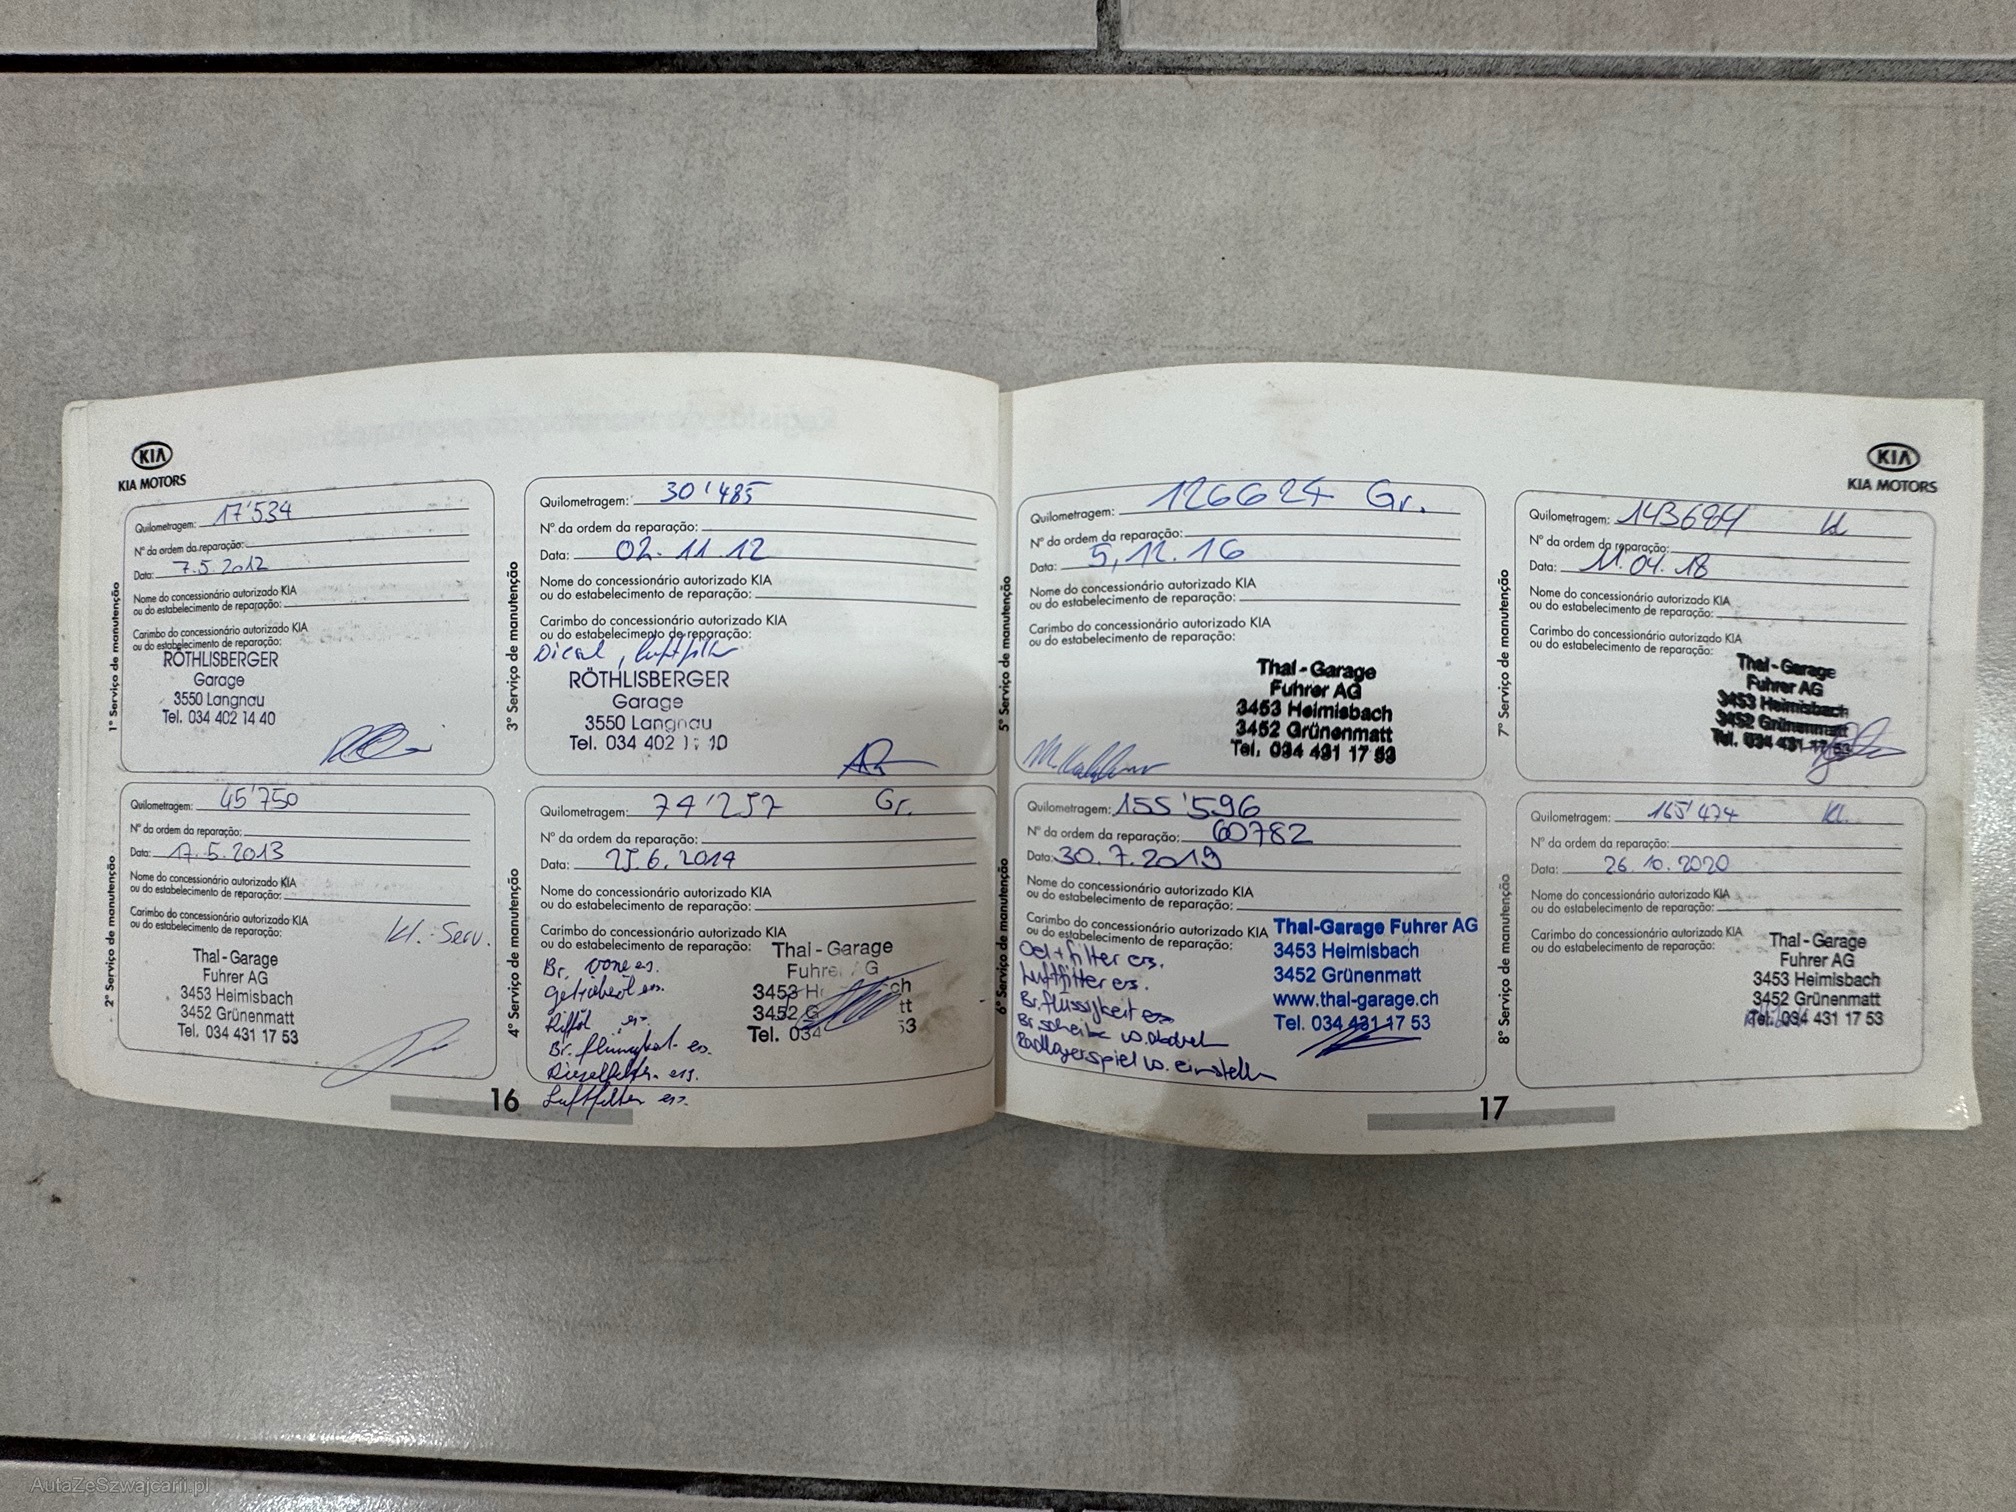 KIA
KIA MOTORS
1º Serviço de manutenção
Quilometragem: 17'534
Nº da ordem da reparação:
Data: 7.5.2012
Nome do concessionário autorizado KIA
ou do estabelecimento de reparação:
Carimbo do concessionário autorizado KIA
ou do estabelecimento de reparação:
RÖTHLISBERGER
Garage
3550 Langnau
Tel. 034 402 14 40
2º Serviço de manutenção
Quilometragem: 45'750
Nº da ordem da reparação:
Data: 17.5.2013
Nome do concessionário autorizado KIA
ou do estabelecimento de reparação:
Carimbo do concessionário autorizado KIA
ou do estabelecimento de reparação:
Kl. Serv.
Thal - Garage
Fuhrer AG
3453 Heimisbach
3452 Grünenmatt
Tel. 034 431 17 53
3º Serviço de manutenção
Quilometragem: 30'485
Nº da ordem da reparação:
Data: 02.11.12
Nome do concessionário autorizado KIA
ou do estabelecimento de reparação:
Carimbo do concessionário autorizado KIA
ou do estabelecimento de reparação:
Diesel, Luftfilter
RÖTHLISBERGER
Garage
3550 Langnau
Tel. 034 402
4º Serviço de manutenção
Quilometragem: 74'257 Gr.
Nº da ordem da reparação:
Data: 25.6.2014
Nome do concessionário autorizado KIA
ou do estabelecimento de reparação:
Carimbo do concessionário autorizado KIA
ou do estabelecimento de reparação:
Thal - Garage
3453
3452
Tel. 034 53
Br. vorne es.
Getriebeöl es.
Br. es.
Dieselfilter ers.
Luftfilter es.
16
KIA
KIA MOTORS
5º Serviço de manutenção
Quilometragem: 126624 Gr.
Nº da ordem da reparação:
Data: 5.12.16
Nome do concessionário autorizado KIA
ou do estabelecimento de reparação:
Carimbo do concessionário autorizado KIA
ou do estabelecimento de reparação:
Thal - Garage
Fuhrer AG
3453 Heimisbach
3452 Grünenmatt
Tel. 034 431 17 53
6º Serviço de manutenção
Quilometragem: 155'596
Nº da ordem da reparação: 60782
Data: 30.7.2019
Nome do concessionário autorizado KIA
ou do estabelecimento de reparação:
Carimbo do concessionário autorizado KIA
ou do estabelecimento de reparação:
Thal-Garage Fuhrer AG
3453 Heimisbach
3452 Grünenmatt
www.thal-garage.ch
Tel. 034 431 17 53
Oel + filter ers.
Luftfilter ers.
Br.flüssigkeit es
Br.scheibe v.
Radlagerspiel v. einstellen
7º Serviço de manutenção
Quilometragem: Kl
Nº da ordem da reparação:
Data: 11.04.18
Nome do concessionário autorizado KIA
ou do estabelecimento de reparação:
Carimbo do concessionário autorizado KIA
ou do estabelecimento de reparação:
Thal - Garage
Fuhrer AG
3453 Heimisbach
3452 Grünenmatt
Tel. 034 431 17 53
8º Serviço de manutenção
Quilometragem: 165'474 Kl.
Nº da ordem da reparação:
Data: 26.10.2020
Nome do concessionário autorizado KIA
ou do estabelecimento de reparação:
Carimbo do concessionário autorizado KIA
ou do estabelecimento de reparação:
Thal - Garage
Fuhrer AG
3453 Heimisbach
3452 Grünenmatt
Tel. 034 431 17 53
17
AutaZeSzwajcarii.pl